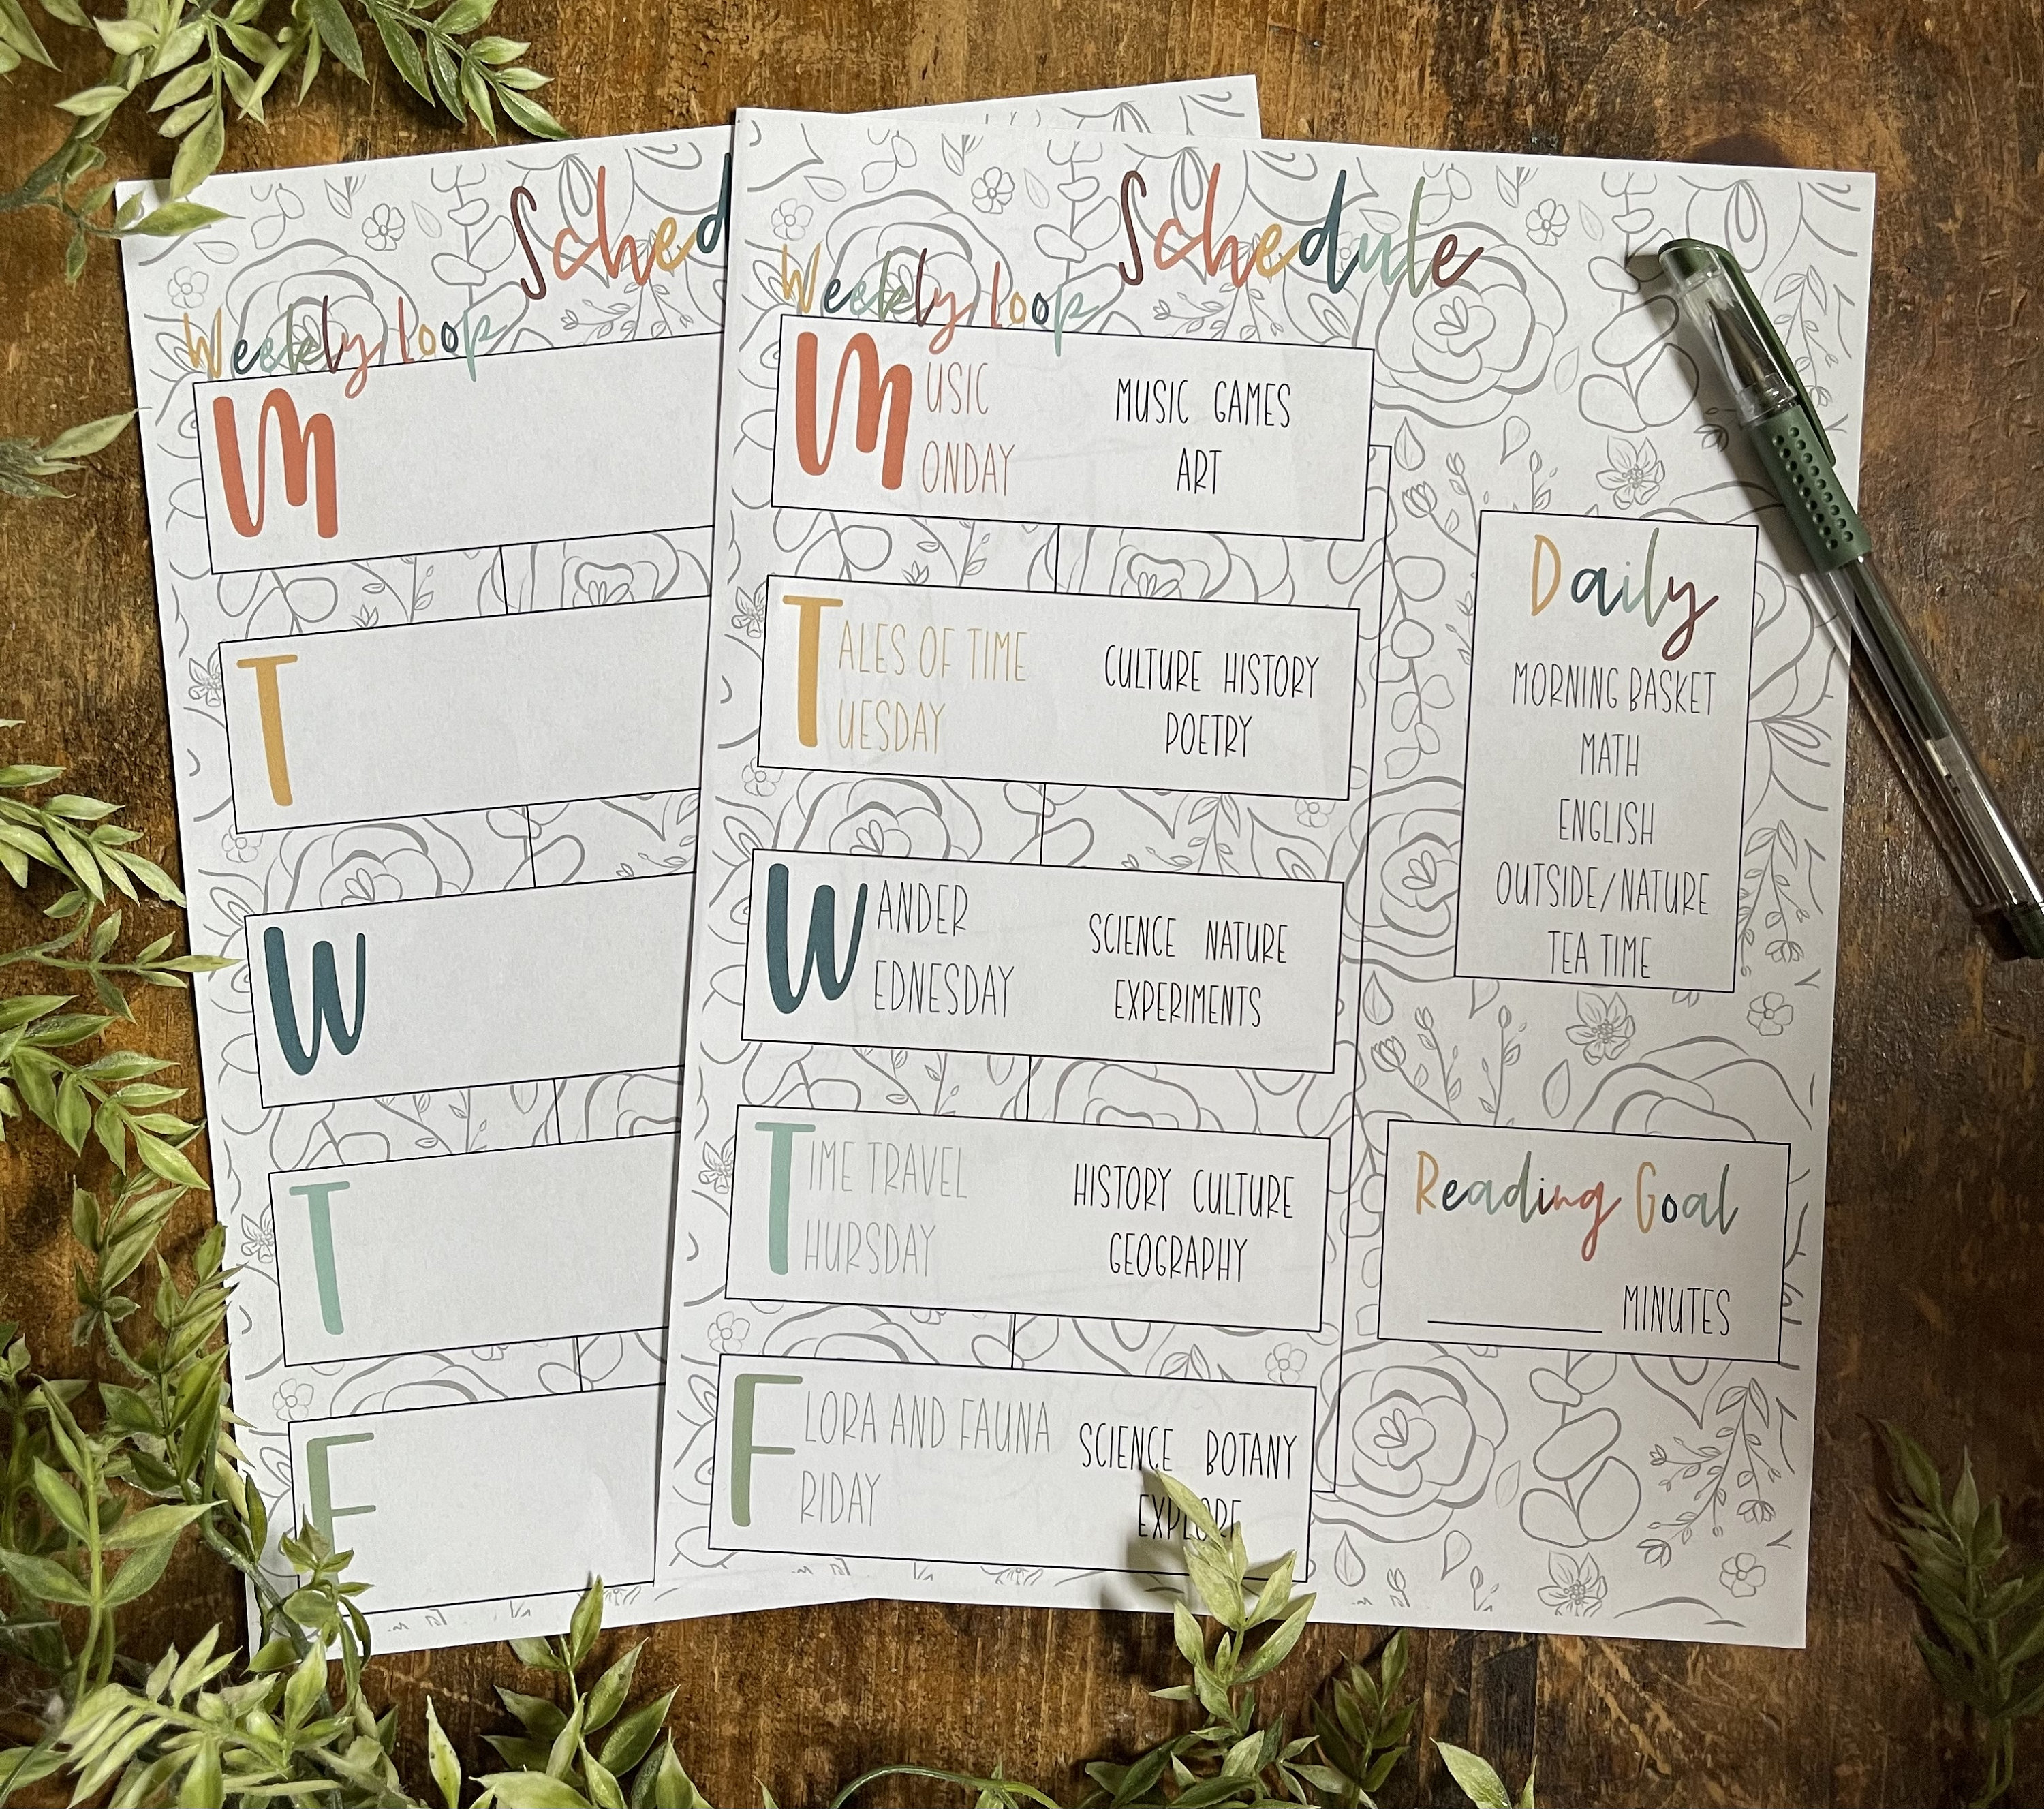 Sched
Weekly loop
M
T
W
T
F
Schedule
Weekly loop
MUSIC
MONDAY
MUSIC GAMES
ART
TALES OF TIME
TUESDAY
CULTURE HISTORY
POETRY
WANDER
WEDNESDAY
SCIENCE NATURE
EXPERIMENTS
TIME TRAVEL
THURSDAY
HISTORY CULTURE
GEOGRAPHY
FLORA AND FAUNA
FRIDAY
SCIENCE BOTANY
EXPLORE
Daily
MORNING BASKET
MATH
ENGLISH
OUTSIDE/NATURE
TEA TIME
Reading Goal
MINUTES